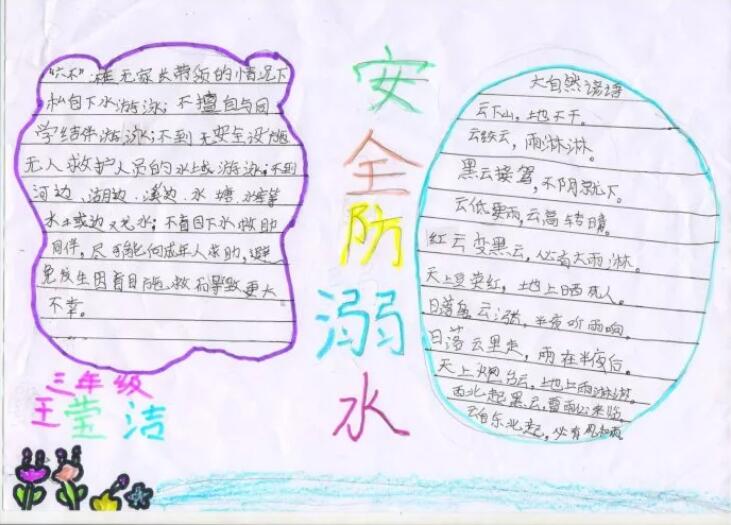 "六不":在无家长带领的情况下
私自下水游泳;不擅自与同
学结伴游泳;不到无安全设施
无人救护人员的水域游泳;不到
河边、湖边、溪边、水塘、水库等
水域边戏水;不盲目下水救助
同伴,尽可能向成年人求助,避
免发生因盲目施救而导致更大
不幸。
三年级
王莹洁
安全防溺水
大自然谚语
云下山,地不干。
云绞云,雨淋淋。
黑云接驾,不阴就下。
云低要雨,云高转晴。
红云变黑云,必有大雨淋。
天上
红,地上晒死人。
日落
云涨,半夜听雨响。
日落云里走,雨在半夜后。
天上
云,地上雨淋淋。
西北起黑云,雷雨必来临。
云自东北起,必有风和雨